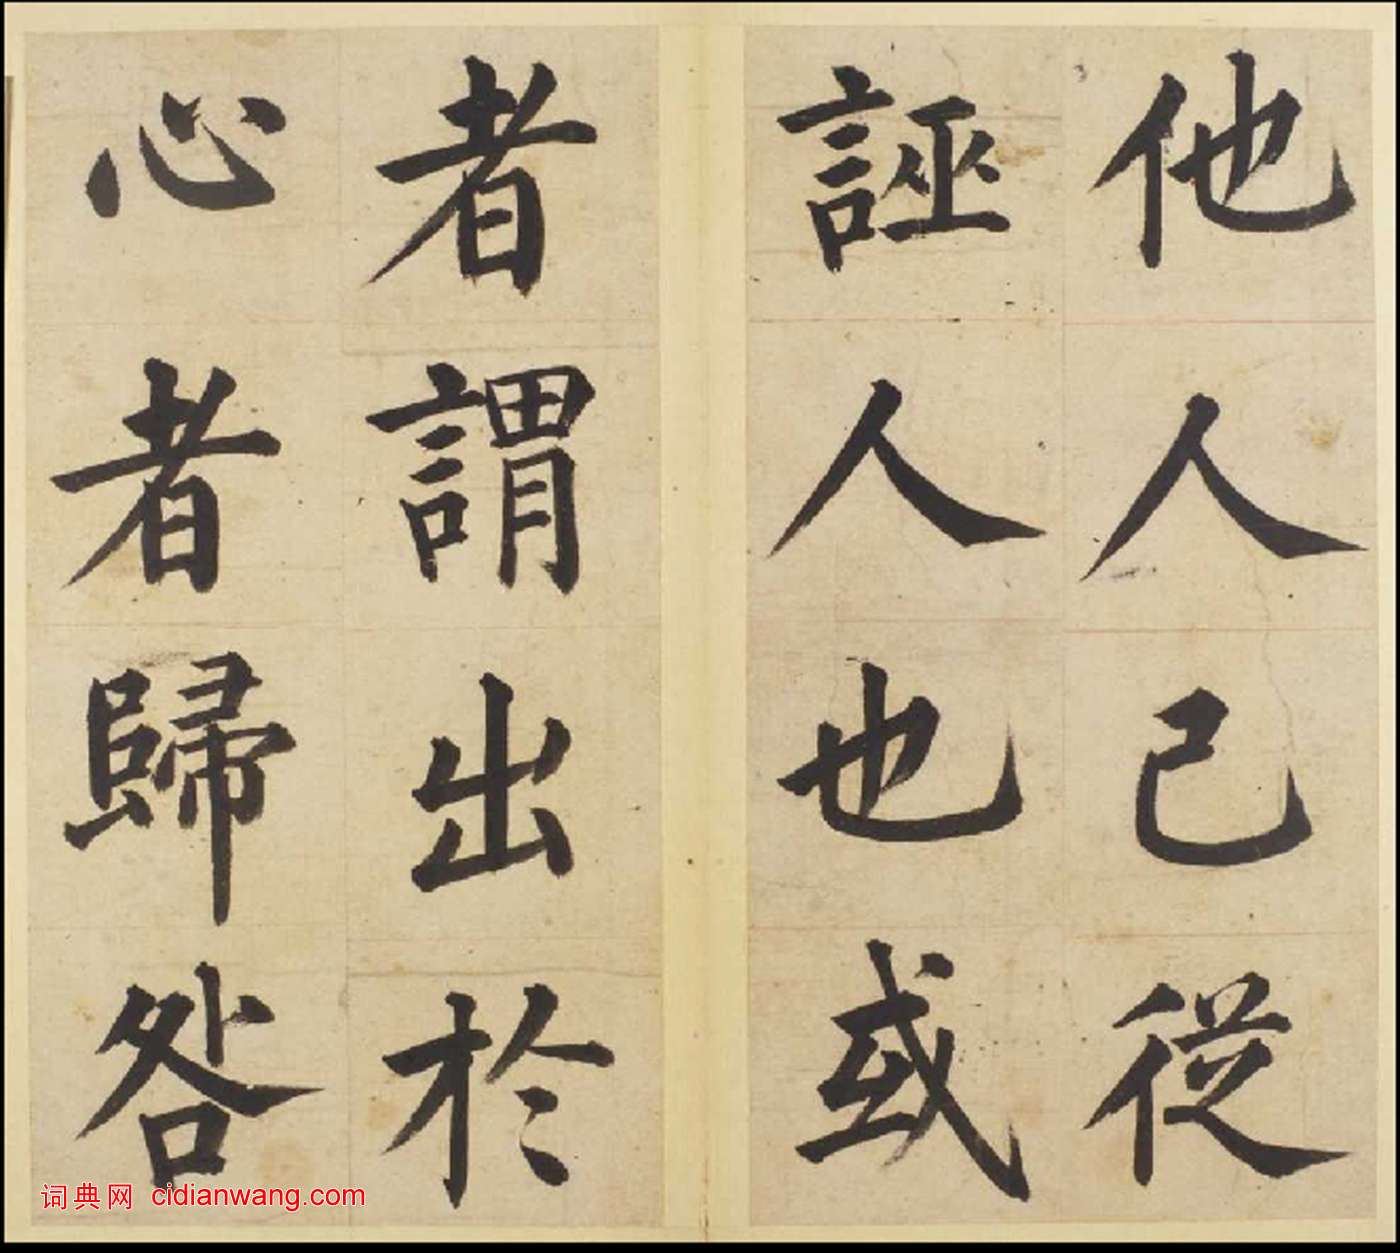 他人己從
誣人也或
者謂出於
心者歸咎
词典网 cidianwang.com